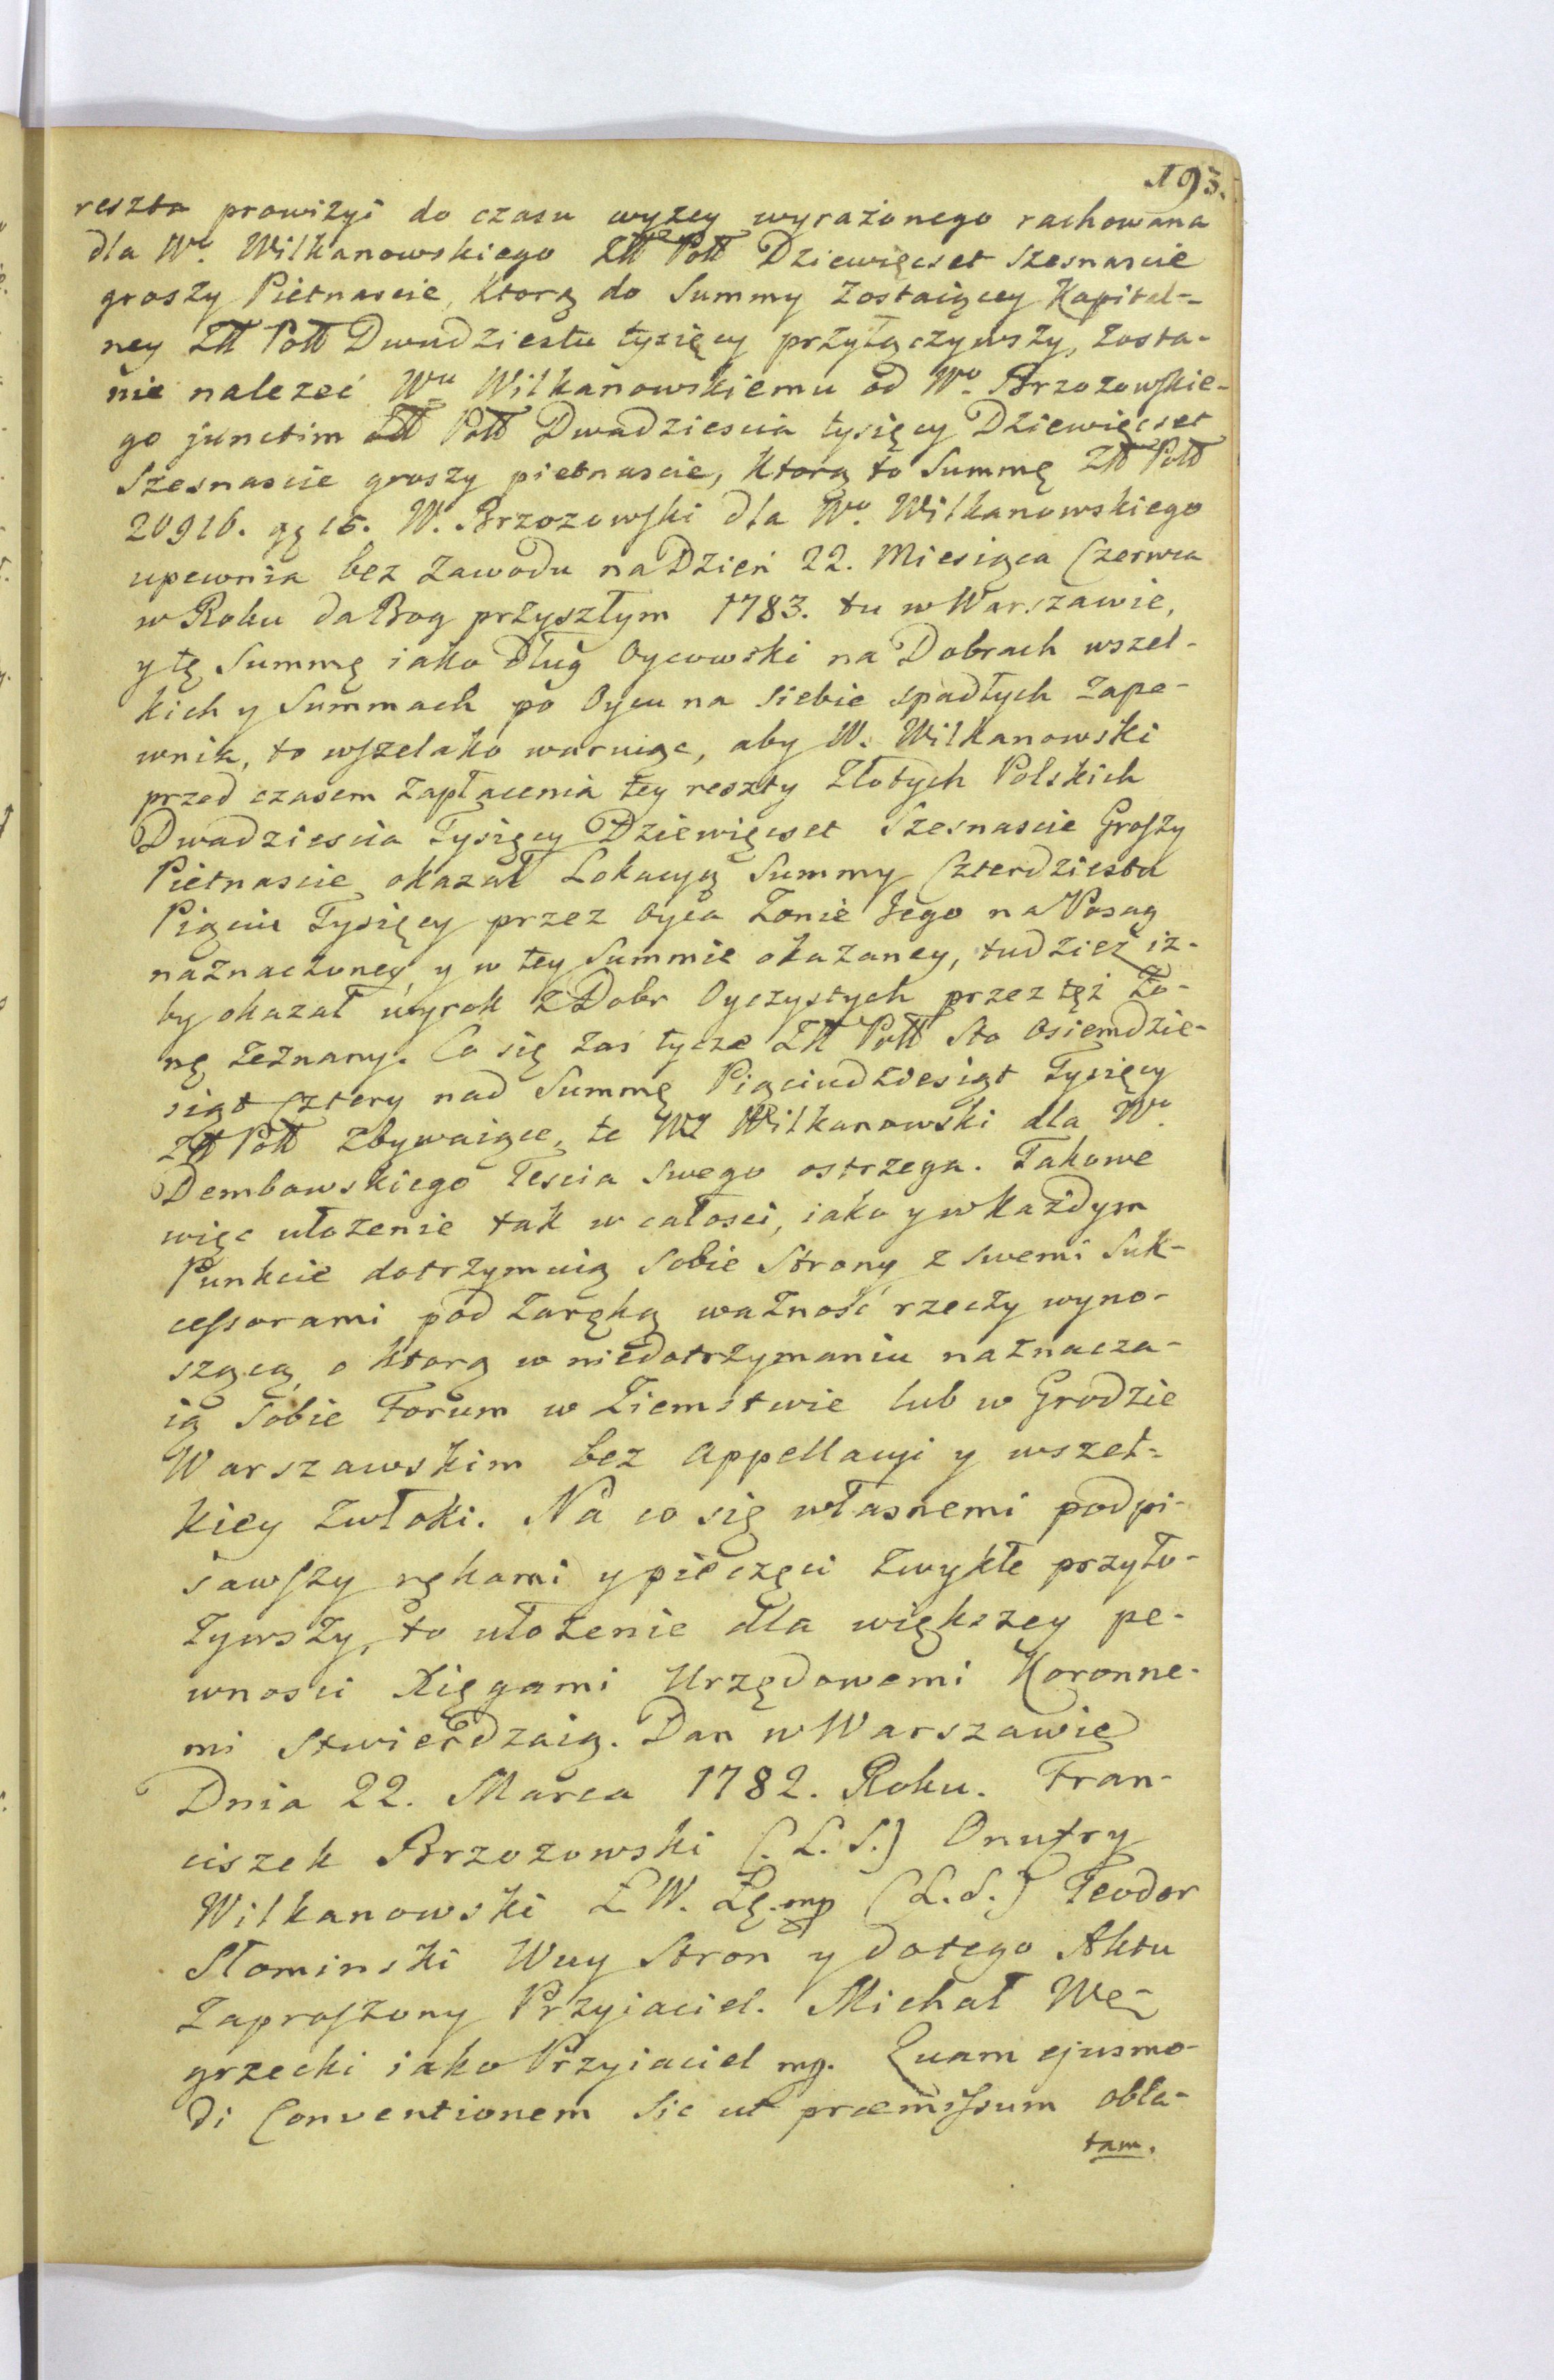 193.
reszta prowizyi do czasu wyzey wyrażonego rachowana
dla Wo. Wilkanowskiego Złł Poll Dziewięcset szesnascie
groszy Pietnascie, ktorą do Summy zostaiącey Kapital-
ney Złł Poll Dwudziestu tysięcy przyłączywszy, zosta-
nie nalezeć Wu Wilkanowskiemu od Wo. Brzozowskie-
go junctim Złł Poll Dwadziescia tysięcy Dziewięcset
Szesnascie groszy pietnascie, ktorą to Summę Złł Poll
20916. gę 15. W. Brzozowski dla Wo. Wilkanowskiego
upewnia bez zawodu na Dzień 22. Miesiąca Czerwca
w Roku da Bog przyszłym 1783. tu w Warszawie,
y tę Summę iako dług Oycowski na Dobrach wszel-
kich y Summach po Oycu na siebie spadłych zape-
wnia, to wszelako waruiąc, aby W. Wilkanowski
przed czasem zapłacenia tey reszty Złotych Polskich
Dwadziescia Tysięcy Dziewięcset Szesnascie Groszy
Pietnascie okazał Lokacyą Summy Czterdziestu
Piąciu Tysięcy przez Oyca Zonie Jego na Posag
naznaczoney, y w tey Summie okazaney, tudzież iz-
by okazał wyrok z Dobr Oyczystych przez tęż Żo-
nę zeznany. Co się zaś tycze Złł Poll Sto Osiemdzie-
siąt cztery nad Summę Piąciudziesiąt Tysięcy
Złł Poll zbywaiące, te WJ Wilkanowski dla Wo.
Dembowskiego Tescia swego ostrzega. Takowe
więc ułozenie tak w całosci, iako y w każdym
Punkcie dotrzymuią sobie Strony z swemi Suk-
cessorami pod zaręką ważność rzeczy wyno-
szącą, o ktorą w niedotrzymaniu naznacza-
ią sobie Forum w Ziemstwie lub w Grodzie
Warszawskim bez appellacyi y wszel-
kiey zwłoki. Na co się własnemi podpi-
sawszy rękami y pieczęci zwykłe przyło-
żywszy, to ułożenie dla większey pe-
wnosci Xięgami Urzędowemi Koronne-
mi stwierdzaią. Dan w Warszawie
Dnia 22. Marca 1782. Roku. Fran-
ciszek Brzozowski (L. S.) Onufry
Wilkanowski Ł W. Łę. mp (L. S.) Teodor
Słominski Wuy Stron y do tego Aktu
zaproszony Przyiaciel. Michał Wę-
grzecki iako Przyiaciel mp. Quam ejusmo-
di Conventionem sic ut præmissum obla-
tam.